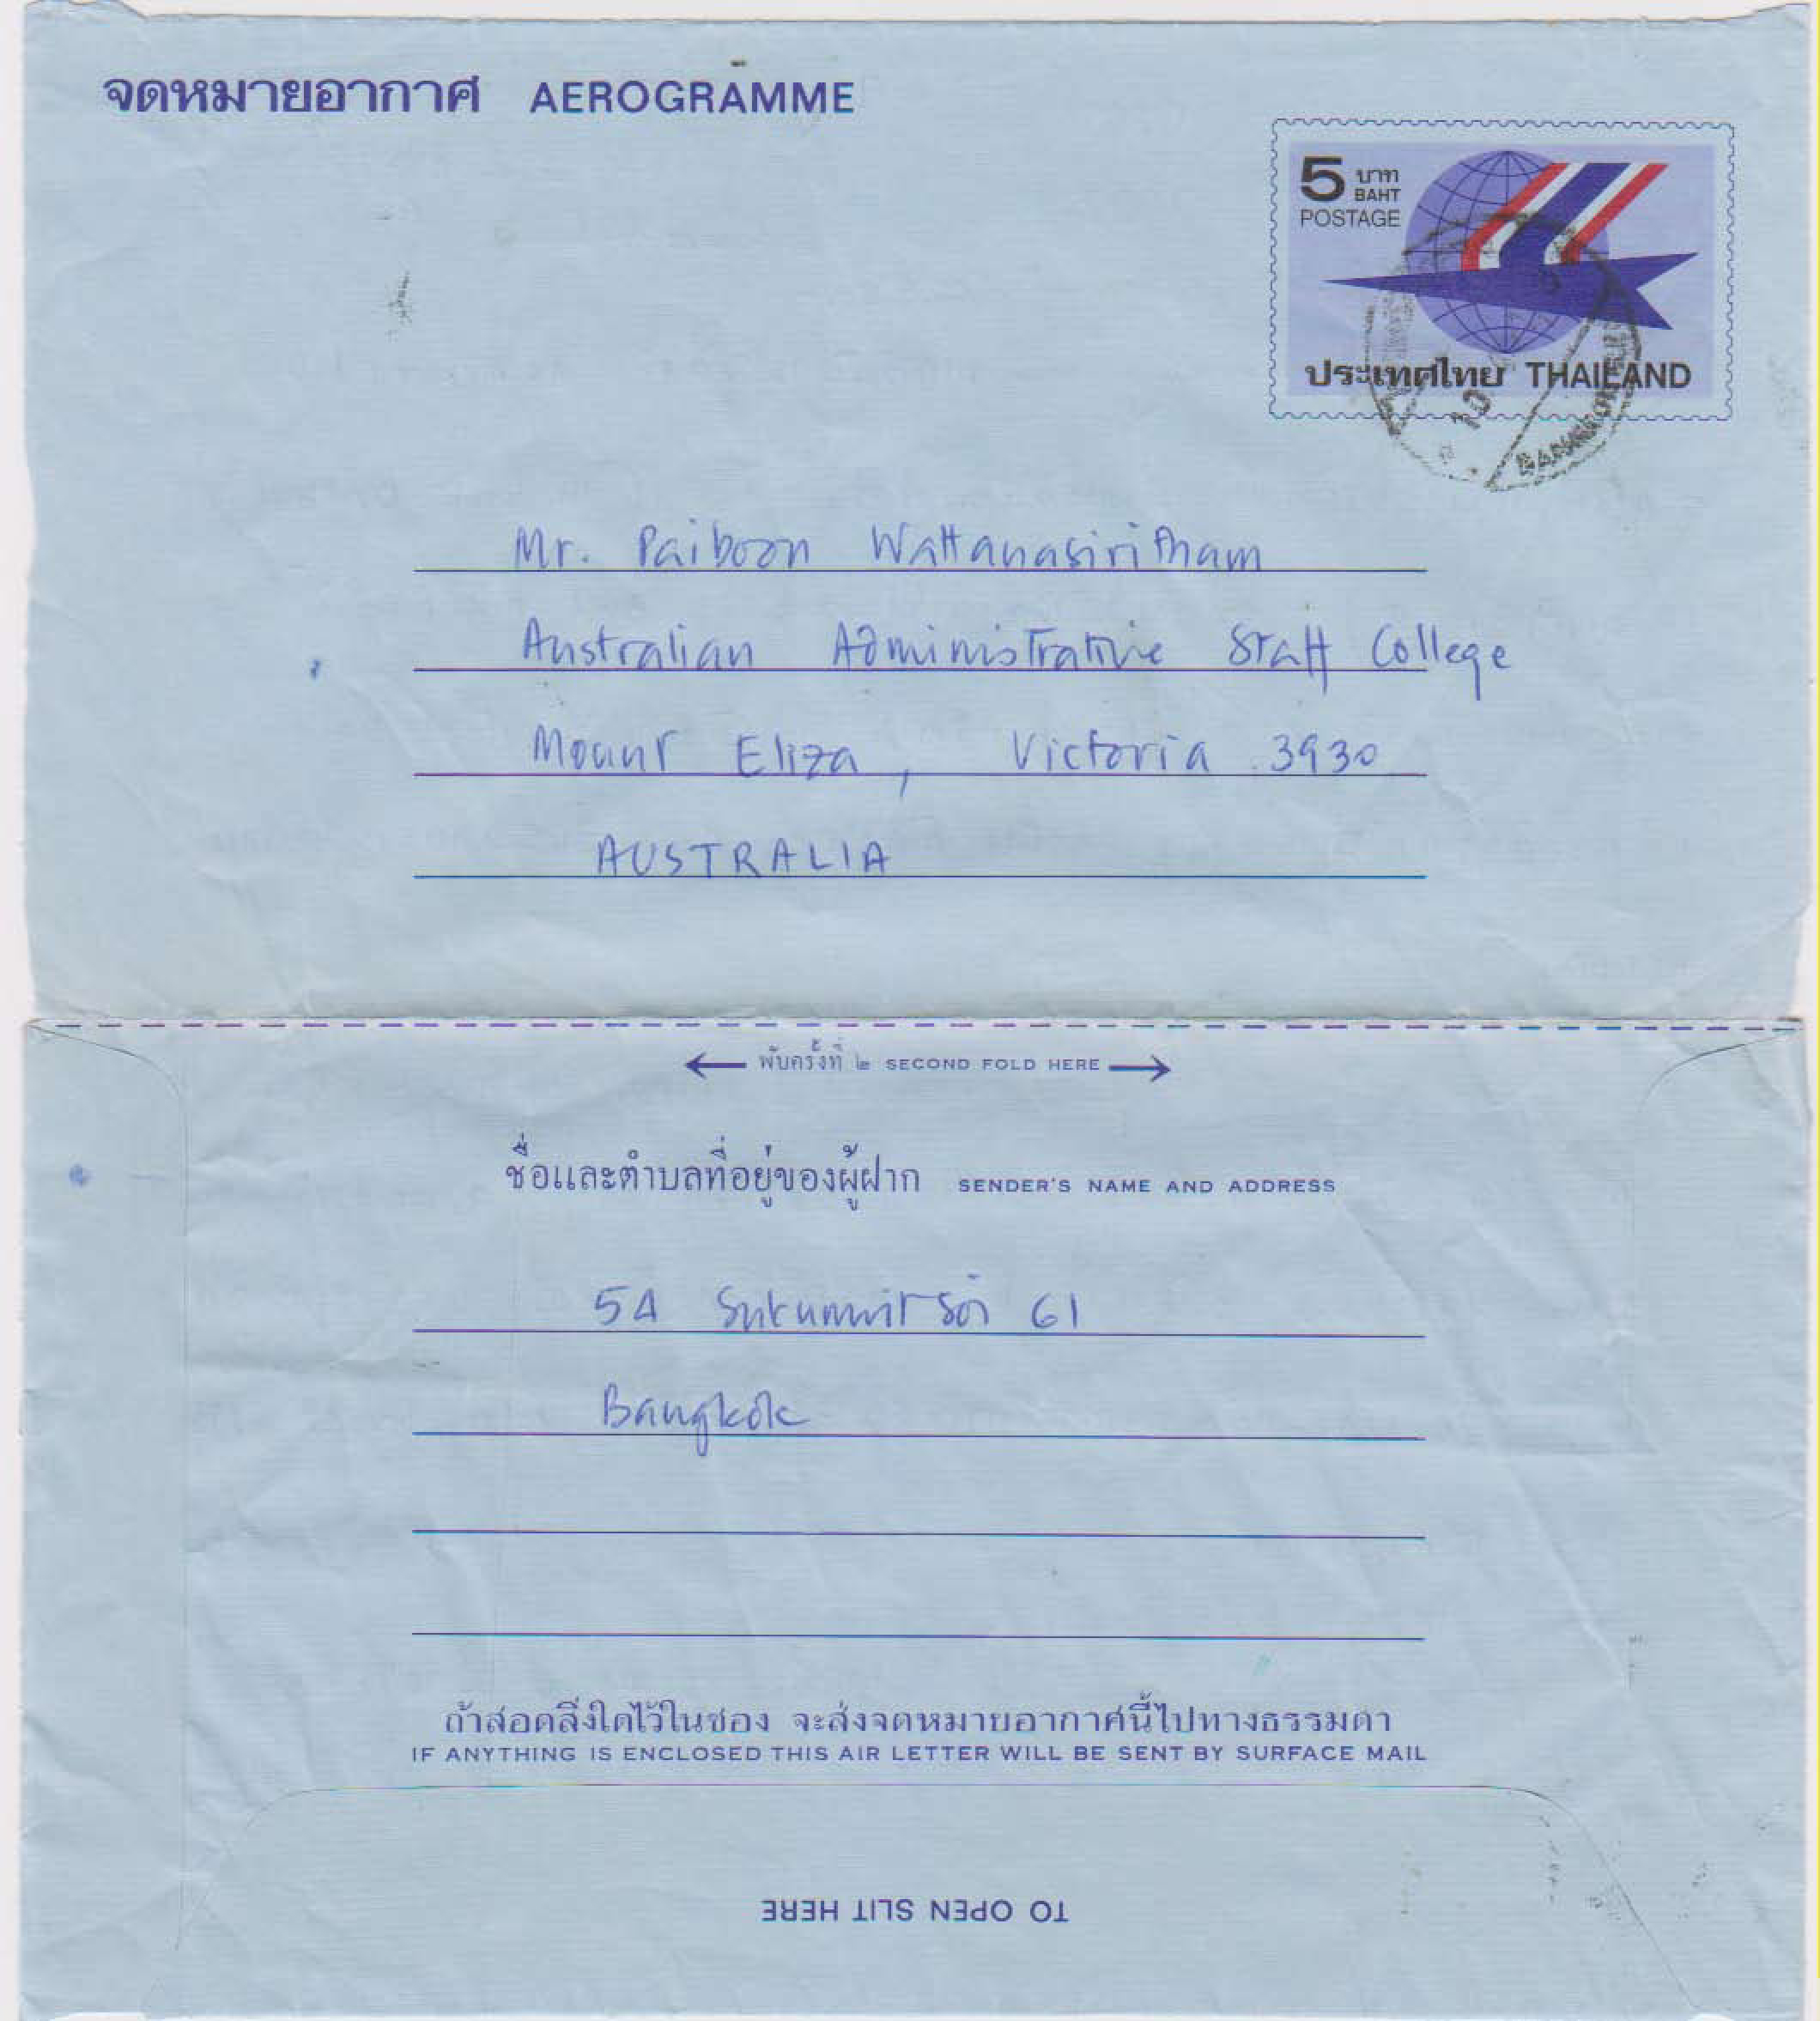 จดหมายอากาศ AEROGRAMME
5 บาท
BAHT
POSTAGE
ประเทศไทย THAILAND
10
BANGKOK
Mr. Paiboon Wattanasiritham
Australian Administrative Staff College
Mount Eliza, Victoria 3930
AUSTRALIA
พับครั้งที่ ๒ SECOND FOLD HERE
ชื่อและตำบลที่อยู่ของผู้ฝาก SENDER'S NAME AND ADDRESS
54 Sukumvit Soi 61
Bangkok
ถ้าสอดสิ่งใดไว้ในซอง จะส่งจดหมายอากาศนี้ไปทางธรรมดา
IF ANYTHING IS ENCLOSED THIS AIR LETTER WILL BE SENT BY SURFACE MAIL
TO OPEN SLIT HERE